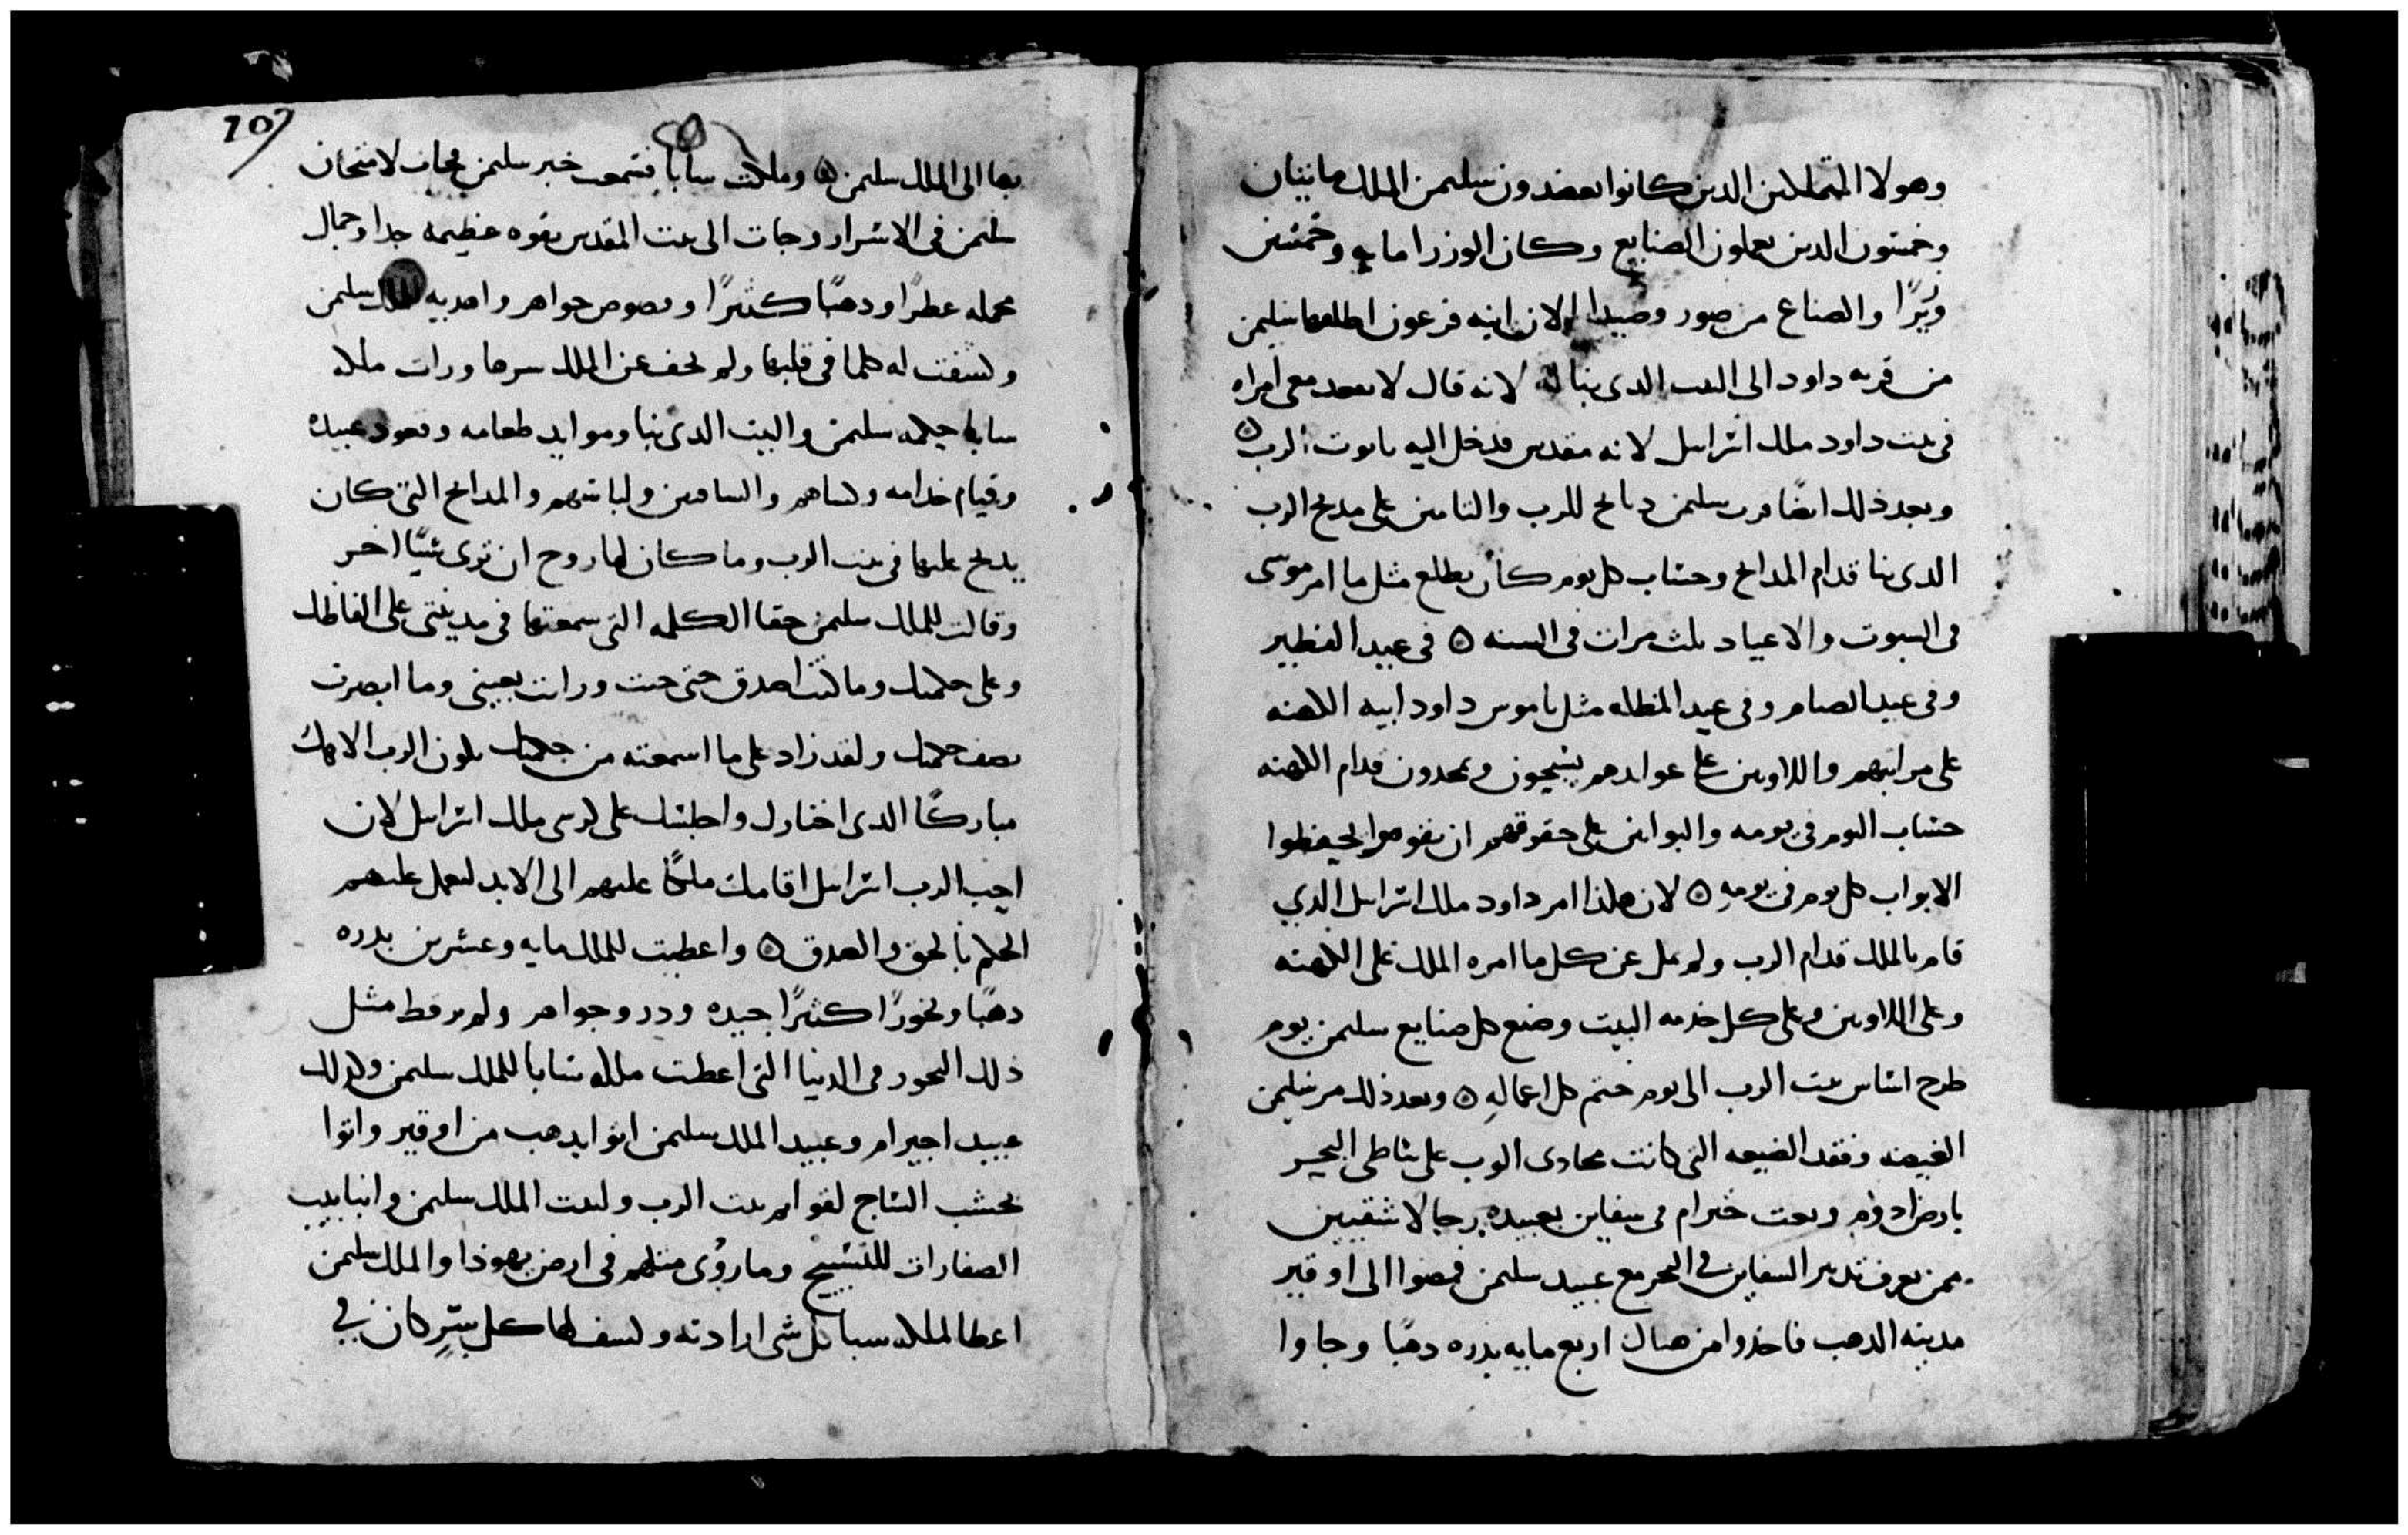 وهولا المتملاين الدين كانوا يعضدون سليمن الملك مايتان
وخمسون الدين يعملون الصنايع وكان الوزرا مايه وخمسين
وزيرًا والصناع من صور وصيدا الان ابنه فرعون اطلعها سليمن
من قريه داود الى البيت الدى بنا له لانه قال لا تقعد معى امراه
فى بيت داود ملك اسرايل لانه مقدس فدخل اليه تابوت الرب ٥
وبعد ذلك ايضًا قرب سليمن دبايح للرب والتامين على مدبح الرب
الدى بنا قدام المدابح وحساب كل يوم كان يطلع مثل ما امر موسى
فى السبوت والاعياد ثلث مرات فى السنه ٥ فى عيد الفطير
وفى عيد الصام وفى عيد المظله مثل ناموس داود ابيه الكهنه
على مراتبهم واللاويين على عوايدهم يسبحون ويمجدون قدام الكهنه
حساب اليوم فى يومه والبوابين على حقوقهم ان يقوموا ليحفظوا
الابواب كل يوم فى يومه ٥ لان هكذا امر داود ملك اسرايل الدي
قام بالملك قدام الرب ولم يمل عن كل ما امره الملك على الكهنه
وعلى اللاويين وعلى كل خدمه البيت وصنع كل صنايع سليمن يوم
طرح اساس بيت الرب الى يوم ختم كل اعماله ٥ وبعد ذلك مر سليمن
الغيضه وفقد الضيعه التى كانت محادى الوب على شاطى البحر
بارض ادوم وبعت خيرام فى سفاين بعبيده رجالا شقيين
ممن يعرف تدبير السفاين في البحر مع عبيد سليمن فمضوا الى اوقير
مدينه الدهب فاخدوا من هناك اربع مايه بدره دهبًا وجاوا
107
بها الى الملك سليمن ٥ وملكت سابا فسمعت خبر سليمن فجات لامتحان
سليمن فى الاسرار وجات الى بيت المقدس بقوه عظيمه جدا وجمال
محمله عطرًا ودهبًا كثيرًا وفصوص جواهر واهديه للملك سليمن
وكشفت له كلما فى قلبها ولم يخف عن الملك سرها ورات ملكه
سابا حكمه سليمن والبيت الدى بنا وموايد طعامه وقعود عبيده
وقيام خدامه وكساهم والساقيين ولباسهم والمدابح التى كان
يدبح عليها فى بيت الرب وما كان لها روح ان ترى شيًا اخر
وقالت للملك سليمن حقا الكلمه التى سمعتها فى مدينتى على الفاظك
وعلى حكمتك وما كنت اصدق حتى جيت ورايت بعينى وما ابصرت
نصف حكمتك ولقد زاد على ما اسمعته من حكمتك يكون الرب الاهك
مباركًا الدى اختارك واجلسك على كرسى ملك اسرايل لان
احب الرب اسرايل اقامك ملكًا عليهم الى الابد لتعمل عليهم
الحكم بالحق والصدق ٥ واعطيت للملك مايه وعشرين بدره
دهبًا وبخورًا كثيرًا جيده ودر وجواهر ولم ير قط مثل
ذلك البخور فى الدنيا التى اعطت ملكه سابا للملك سليمن وكدلك
عبيد احيرام وعبيد الملك سليمن اتوا بدهب من اوقير واتوا
بخشب الساج لقوايم بيت الرب ولبيت الملك سليمن وانبابيب
الصفارات للتسبيح وما روى مثلهم فى ارض يهوذا والملك سليمن
اعطا لملكه سبا كل شى ارادته وكشف لها كل سر كان في